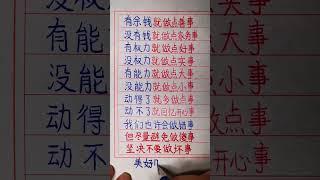 有余钱就做点善事
没有钱就做点家务事
有权力就做点好事
没权力就做点实事
有能力就做点大事
没能力就做点小事
动得了就多做点事
动不了就回忆开心事
我们也许会做错事
但尽量避免做傻事
坚决不要做坏事
美好